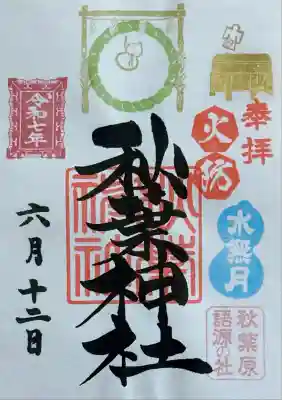 奉拝
火防
水無月
秋葉原
語源の社
秋葉神社
令和七年
六月十二日